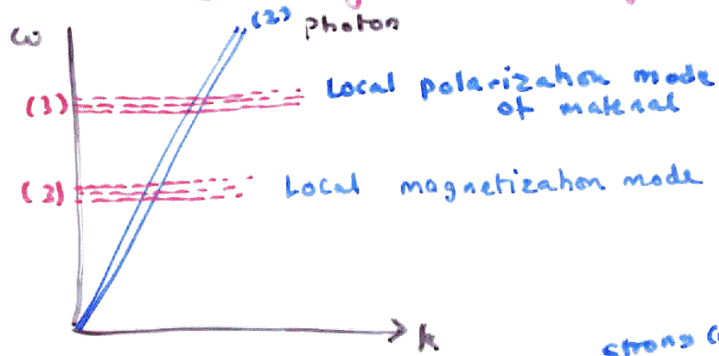 ω
(2) photon
(3) Local polarization mode
of material
(3) Local magnetization mode
k
strong